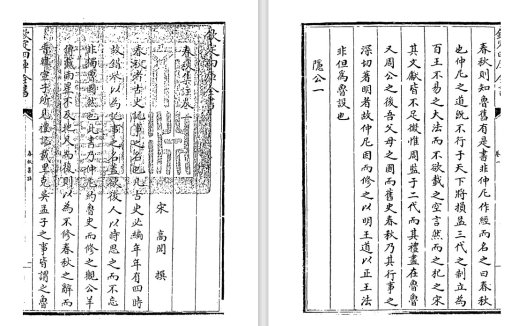 欽定四庫全書
春秋集註卷一
宋 高閌 撰
春秋者古史記事之名也凡古史必編年年有四時
故錯舉以為記事之名蓋欲後人以時思之而不忘
非獨魯國然也此書乃仲尼約魯史而修之觀公羊
傳載雨星不及地尺而復則以為不修春秋之辭而
晉韓宣子所見禮記載里克吳孟子之事皆謂之魯
欽定四庫全書
春秋集註
春秋則知魯舊有是書非仲尼作經而名之曰春秋
也仲尼之道既不行于天下將損益三代之制立為
百王不易之大法而不欲載之空言然而之杞之宋
其文獻皆不足徵惟周監于二代而其禮盡在魯魯
又周公之後吾父母之國而舊史春秋乃其行事之
深切著明者故仲尼因而修之以明王道以正王法
非但為魯設也
隱公一